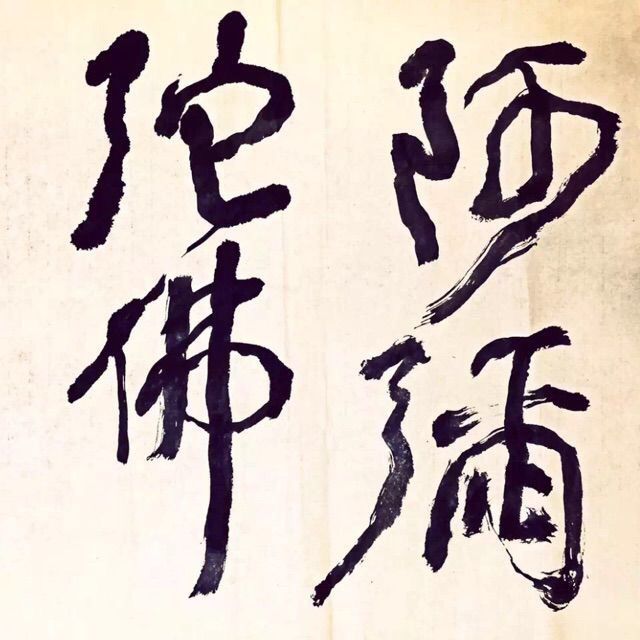 阿彌
陀佛